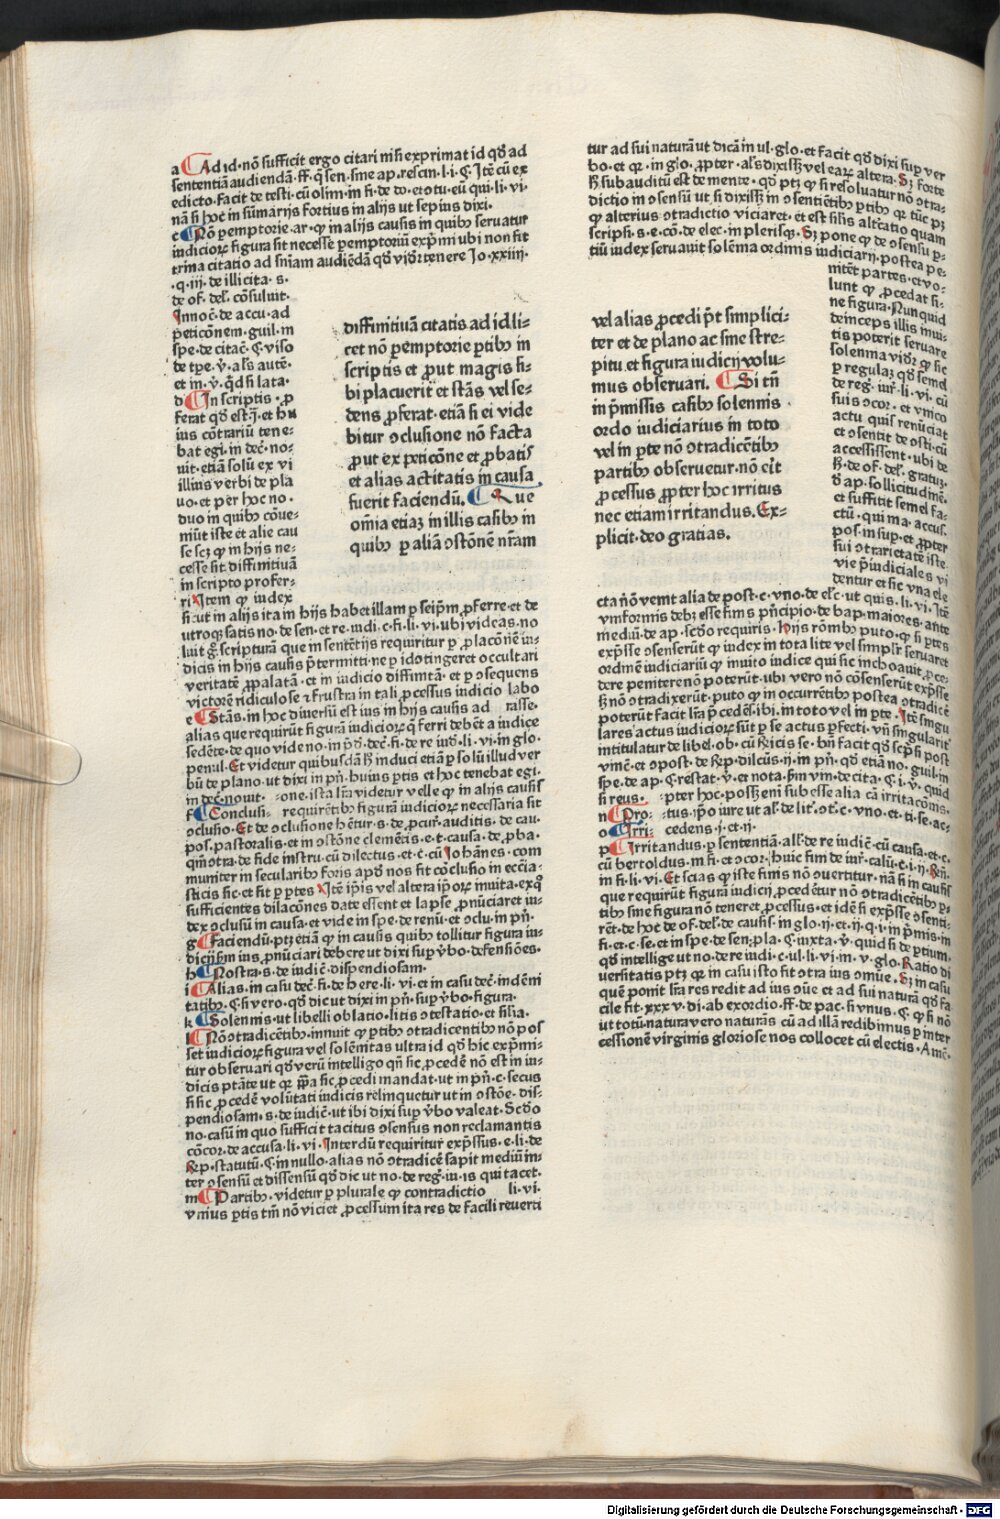 a Ad id·nō sufficit ergo citari nisi exprimat id qđ ad
sententiā audiendā·ff·ꝙ sen·sine ap·rescin·l·i·ꝯ·Itē cū ex
edicto·facit de testi·cū olim·in fi·de do·et otu·eū qui·li·vi·
nā si hoc in sūmarijs fortius in alijs ut sepius dixi·
c Nō ꝑemptorie·ar·ꝙ in alijs causis in quibꝰ seruatur
iudicioꝝ figura sit necesse ꝑemptoriū exp̄mi ubi non fit
trina citatio ad sn̄iam audiēdā qđ vidr̄ tenere Jo·xxiiij·
·q·iij·de illicita·s·
de of·del̄·cōsuluit·
Innoc̄·de accu·ad
peticōnem·guil·in
spe·de citac̄·ꝯ·viso
de tꝑe·v̄·als autē·
et in·v̄·qd si lata·
d In scriptis·ꝓ
ferat qđ est·q̄·et hu
ius cōtrariū tene-
bat egi·in dec̄·no-
uit·etiā solū ex vi
illius verbi de pla
uo·et per hoc no·
duo in quibꝰ cōue-
niūt iste et alie cau
se scꝫ ꝙ in hijs ne-
cesse fit·diffinitiuā
in scripto profer-
ri·Item ꝙ iudex
diffinitiuā citatis ad id li-
cet nō ꝑemptorie ꝑtibꝰ in
scriptis et ꝓut magis si-
bi placuerit et stās vel se-
dens ꝓferat·etiā si ei vide
bitur ɔclusione nō facta
ꝓut ex peticōne et ꝓbatis
et alias actitatis in causa
fuerit faciendū. Que
om̄ia etiaꝫ in illis casibꝰ in
quibꝰ ꝑ aliā ɔstōnē nr̄am
fi:ut in alijs ita in hijs habet illam ꝑ seip̄m ꝓferre·et de
utroqꝫ satis no·de sen·et re·iudi·c·fi·li·vi·ubi videas·no
luit ḡ·scripturā que in sentētijs requiritur ꝑ ꝓlacōnē iu-
dicis in hijs causis p̄termitti·ne ꝑ id otingeret occultari
veritatē ꝓpalatā·et in iudicio diffinitā·et ꝑ ɔsequens
victorē ridiculose ⁊ frustra in tali ꝓcessus iudicio labo
e Stās·in hoc diuersū est ius in hijs causis ad rasse·
alias que requirūt figurā iudicioꝝ q̄ ferri debēt a iudice
sedēte·de quo vide no·in p̄d·dec̄·fi·de re iud·li·vi·in glo·
penul·Et videtur quibusdā hͦ induci etiā ꝑ solū illud ver
bū de plano·ut dixi in pn̄·huius ꝑtis et hoc tenebat egi·
in dec̄·nouit· -one·ista lr̄a videtur velle ꝙ in alijs causis
f Conclusi- requirētibꝰ figurā iudicioꝝ necessaria sit
ɔclusio·Et de ɔclusione hētur·s·de ꝓcur·auditis·de cau·
pos·pastoralis·et in ɔstōne clemētis·e·t·causa·de ꝓba·
qm̄ ɔtra·de fide instru·cū dilectus·et·c·cū Johānes·com
muniter in secularibꝰ foris apđ nos fit cōclusio in eccīa-
sticis sic·et fit ꝑ ꝑtes Itē ip̄is vel altera ip̄oꝝ inuita·exqꝰ
sufficientes dilacōnes date essent et lapse ꝓnūciaret iu-
dex ɔclusū in causa·et vide in spe·de renū·et ɔclu·in pn̄·
g Faciendū·ptꝫ etiā ꝙ in causis quibꝰ tollitur figura iu-
dicij sm̄ ius ꝓnūciari debere ut dixi suꝑ v̄bo·defensiōes·
h Nostra·s·de iudic̄·dispendiosam·
i Alias·in casu dec̄·fi·de here·li·vi·et in casu dec̄·indēni
tatibꝰ·ꝯ·si vero·qđ dic ut dixi in pn̄·suꝑ v̄bo·figura·
k Solennis·ut libelli oblatio·litis ɔtestatio·et silia·
l Nō ɔtradicētibꝰ·innuit ꝙ ꝑtibꝰ ɔtradicentibꝰ nō pos
set iudicioꝝ figura vel solēnitas ultra id qđ hic exp̄mi-
tur obseruari qđ verū intelligo qn̄ sic ꝓcedē nō est in iu-
dicis ptāte ut qꝛ pp̄a sic ꝓcedi mandat·ut in pn̄·c·secus
si sic ꝓcedē volūtati iudicis relinquetur ut in ɔstōe·dis-
pendiosam·s·de iudic̄·ut ibi dixi suꝑ v̄bo valeat·Scđo
no·casū in quo sufficit tacitus ɔsensus non reclamantis
cōcor·de accusa·li·vi·Interdū requiritur exp̄ssus·e·li·de
Rꝑ·statutū·ꝯ·in nullo·alias nō ɔtradicē sapit mediū in-
ter ɔsensū et dissensū qđ dic ut no·de reḡ·iu·is qui tacet·
m Partibꝰ·videtur ꝑ plurale ꝙ contradictio li·vi·
vnius ꝑtis tm̄ nō viciet ꝓcessum ita res de facili reuerti
tur ad sui naturā ut dicā in ul·glo·et facit qđ dixi suꝑ ver
bo·et qꝛ·in glo·ꝓpter·als dixissꝫ vel eaꝝ altera·Sꝫ forte
hͦ subauditū est de mente·qđ ptꝫ ꝙ si resoluatur nō ɔtra-
dictio in ɔsensū ut si dixissꝫ in ɔsentiētibꝰ ꝑtibꝰ qꝛ tūc pꝫ
ꝙ alterius ɔtradictio viciaret·et est silis alt̄catio quam
scripsi·s·e·cō·de elec·in plerisqꝫ·Sꝫ pone ꝙ de ɔsensu ꝑ-
tiū iudex seruauit solēnia ordinis iudiciarij·postea pe-
nitēt partes·et vo-
lunt ꝙ ꝓcedat si-
ne figura·Nunquid
deinceps illis inui-
tis poterit seruare
solennia vidr̄ ꝙ sic
ꝑ regulaꝫ qđ semel
de reg·iur̄·li·vi·cū
suis ɔcor·et vnico
actu quis renūciat
et ɔsentit de osti·cū
accessissent·ubi de
hͦ·de of·del̄·gratuꝫ·
đ ap·sollicitudinē·
et suffitit semel fa-
ctū·qui ma·accus·
pos·insuꝑ·et ꝓpter
sui ɔtrarietatē iste
vie p̄iudiciales vi
dentur et sic vna ele
vel alias ꝓcedi p̄t simplici-
ter et de plano ac sine stre-
pitu et figura iudicij volu-
mus obseruari. Si tn̄
in p̄missis casibꝰ solennis
ordo iudiciarius in toto
vel in ꝑte nō ɔtradicētibꝰ
partibꝰ obseruetur·nō er̄it
ꝓcessus ꝓpter hoc irritus
nec etiam irritandus. Ex-
plicit·deo gratias.
cta n̄o venit alia de post·c·vno·de el̄c·ut quis·li·vi·Itē
vniformis debꝫ esse finis pn̄cipio·de bap·maiores·ante
mediū·de ap·scđo requiris·Hijs rōnibꝰ puto·ꝙ si ꝑtes
exp̄sse ɔsenserūt ꝙ index in tota lite vel simplr̄ seruaret
ordinē iudiciariū ꝙ inuito iudice qui sic inchoauit ꝓce-
dere penitere nō poterūt·ubi vero nō cōsenserūt exp̄sse
sꝫ nō ɔtradixerūt·puto ꝙ in occurrētibꝰ postea ɔtradicē
poterūt facit lr̄a p̄cedēs·ibi·in toto vel in ꝑte·Itē singu
lares actus iudicioꝝ sūt ꝑ se actus ꝑfecti·vn̄ singularit̄
intitulatur de libel·ob·cū sīcis se·bn̄ facit qđ scp̄si post
vinē·et ɔpost·de Rꝑ·dilcūs·ij·in pn̄·qđ etiā no·guil·in
spe·de ap·ꝯ·restat·v̄·et nota·sm̄ vin·de cita·ꝯ·i·v̄·quid
si reus· -pter hoc·possꝫ eni subesse alia cā irritacōnis·
n Pro- -tus·ip̄o iure ut al·de lit·ɔt·c·vno·et·ti·se·ac-
o Irri- cedens·j·et·ij·
p Irritandus·ꝑ sententiā·als·de re iudic̄·cū causa·et·c·
cū bertoldus·in fi·et ɔcor·huic·finē de iur·calū·c·i·ij·Rn̄·
in fi·li·vi·Et scias ꝙ iste finis nō ɔuertitur·nā si in causis
que requirūt figurā iudicij ꝓcedētur nō ɔtradicētibꝰ ꝑ-
tibꝰ sine figura nō teneret ꝓcessus·et idē si exp̄sse ɔsenti-
rēt·de hoc de of·del̄·de causis·in glo·ij·et·ij·q·i·in p̄mis·in
fi·et·c·se·et in spe·de sen·ꝫ pla·ꝯ·iuxta·v̄·quid si de ꝑtium·
qđ intellige ut no·de re iudi·c·ul·li·vi·in·v·glo·Ratio di
uersitatis ptꝫ qꝛ in casu isto fit ɔtra ius ōmūe·Sꝫ in casu
quē ponit lr̄a res redit ad ius ɔūe et ad sui naturā qđ fa
cile fit·xxx v·di·ab exordio·ff·de pac·si vnus·ꝯ·ꝙ si nō
ut totū·natura vero naturās cū ad illā redibimus ꝑ inter
cessionē virginis gloriose nos collocet cū electis·Amē·
Digitalisierung gefördert durch die Deutsche Forschungsgemeinschaft - DFG